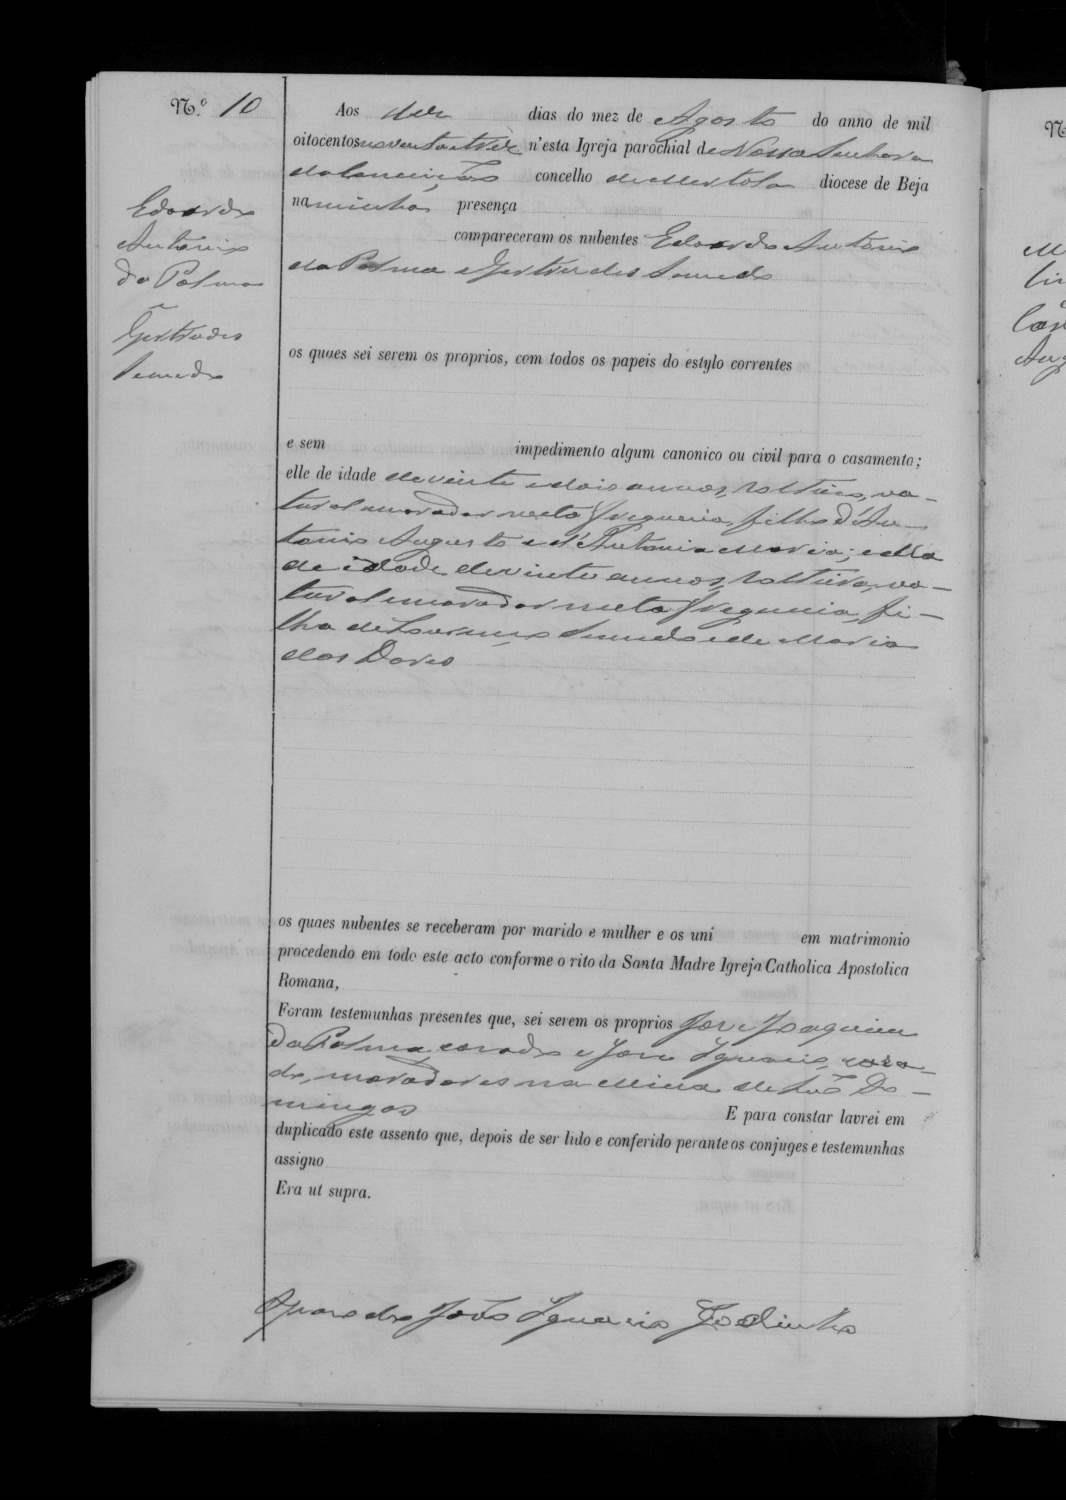 N.º 10
Edoardo
Antonio
da Palma
e
Gertrudes
Senedo
Aos dez dias do mez de Agosto do anno de mil
oitocentos noventa e trez n'esta Igreja parochial de Nossa Senhora
da Conceição concelho de Mertola diocese de Beja
na minha presença
compareceram os nubentes Edoardo Antonio
da Palma e Gertrudes
os quaes sei serem os proprios, com todos os papeis do estylo correntes
e sem impedimento algum canonico ou civil para o casamento;
elle de idade de vinte e dois annos, solteiro, na-
tural e morador nesta freguezia, filho d'An-
tonio Augusto e d'Antonia Maria; e ella
de idade de vinte annos, solteira, na-
tural e morador nesta freguezia, fi-
lha de Lourenço e de Maria
das Dores
os quaes nubentes se receberam por marido e mulher e os uni em matrimonio
procedendo em todo este acto conforme o rito da Santa Madre Igreja Catholica Apostolica
Romana,
Foram testemunhas presentes que, sei serem os proprios José Joaquim
da Palma, casado e José Ignacio, casa-
do, moradores na Mina de São Do-
mingos E para constar lavrei em
duplicado este assento que, depois de ser lido e conferido perante os conjuges e testemunhas
assigno
Era ut supra.
O parocho João Ignacio Godinho